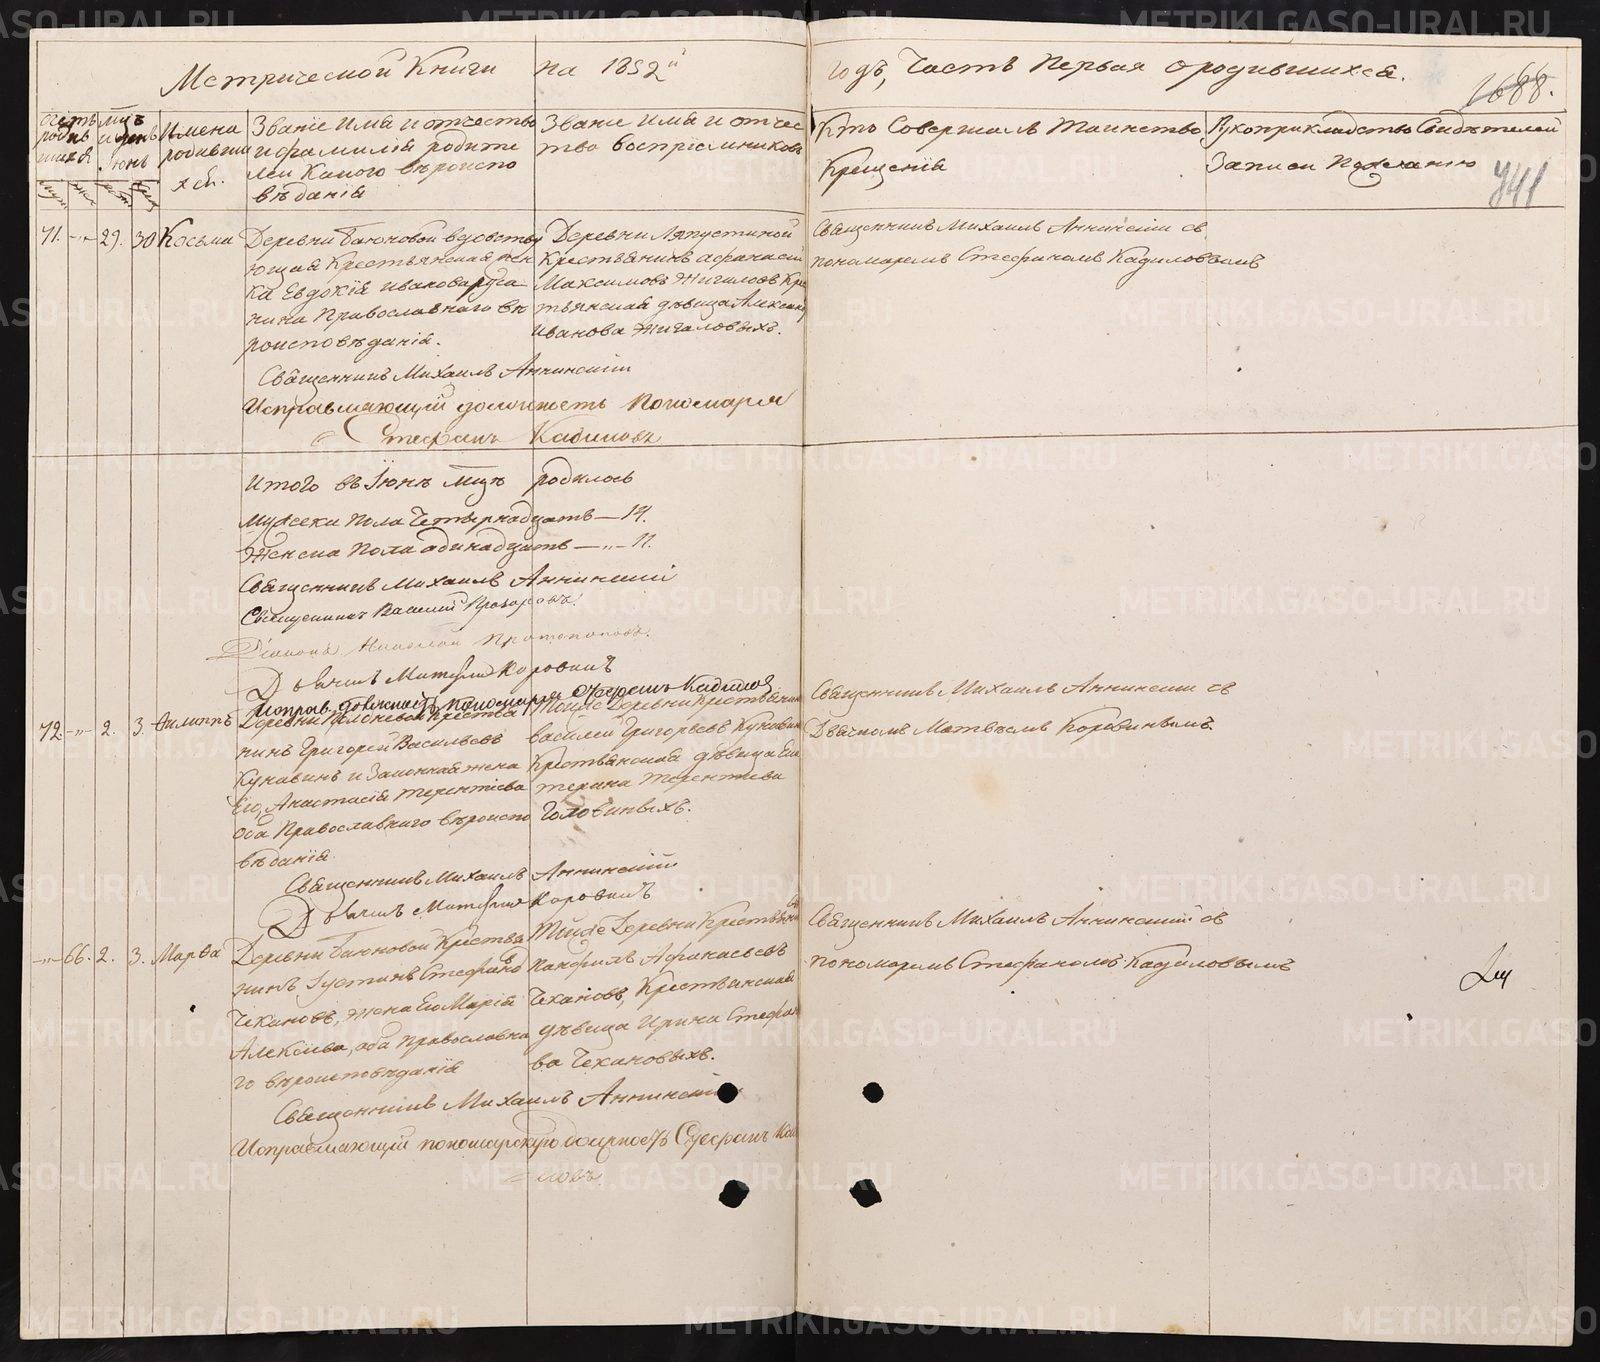 Метрической Книги на 1852й годъ, Часть Первая о родившихся.
1688.
741
Счетъ родив шихся
Мцъ и день Іюнь
Имена родивши хся.
Званіе Имя и отчество и фамилія родите лей Какого вѣроиспо вѣданія
Званіе Имя и отчес тво воспріемниковъ
Кто Совершалъ Таинство Крещенія
Рукоприкладство Свидѣтелей Записи По желанію
71. -"- 29. 30 Косьма
Деревни Баюновой вдовству
ющая Крестьянская жен
ка Евдокія Иванова
нина Православнаго вѣ
роисповѣданія.
Деревни Ляпустиной
Крестьянинъ Афанасій
Максимовъ Жигаловъ Кре
тьянская дѣвица Александ
Иванова Жигаловыхъ.
Священникъ Михаилъ Аннинскій съ
пономаремъ Стефаномъ Кадиловымъ
Священникъ Михаилъ Аннинскій
Исправляющій должность Пономаря
Стефанъ Кадиловъ
Итого въ Іюнѣ Мцѣ родилось
Мужеска Пола Четырнадцать — 14.
Женска Пола одинадцать — " — 11.
Священникъ Михаилъ Аннинскій
Священникъ Василій Прозоровъ.
Діаконъ Николай Протопоповъ.
Дьячекъ Матфей Коровинъ
Исправ. должность пономаря Стефанъ Кадиловъ
72. -"- 2. 3. Филиппъ
Деревни Крестья
нинъ Григорей Васильевъ
Кунавинъ и Законная жена
Его, Анастасія Терентіева
оба Православнаго вѣроиспо
вѣданія
Тойже Деревни Крестьянинъ
Василей Григорьевъ Кунавин
Крестьянская дѣвица Ека
терина Терентіева
Головиныхъ.
Священникъ Михаилъ Аннинскій съ
Дьячкомъ Матвѣемъ Коровинымъ.
Священникъ Михаилъ Аннинскій
Дьячекъ Матфей Коровинъ
-"- 66. 2. 3. Марѳа
Деревни Баюновой Крестья
нинъ Іустинъ Стефановъ
Чекановъ, жена Его Марія
Алексіева, оба Православна
го вѣроисповѣданія
Тойже Деревни Крестьяни
Панфилъ Афанасьевъ
Чекановъ, Крестьянская
дѣвица Ирина Стефано
ва Чекановыхъ.
Священникъ Михаилъ Аннинскій съ
пономаремъ Стефаномъ Кадиловымъ
Священникъ Михаилъ Аннинскій
Исправляющій пономарскую должность Стефанъ Кади
ловъ